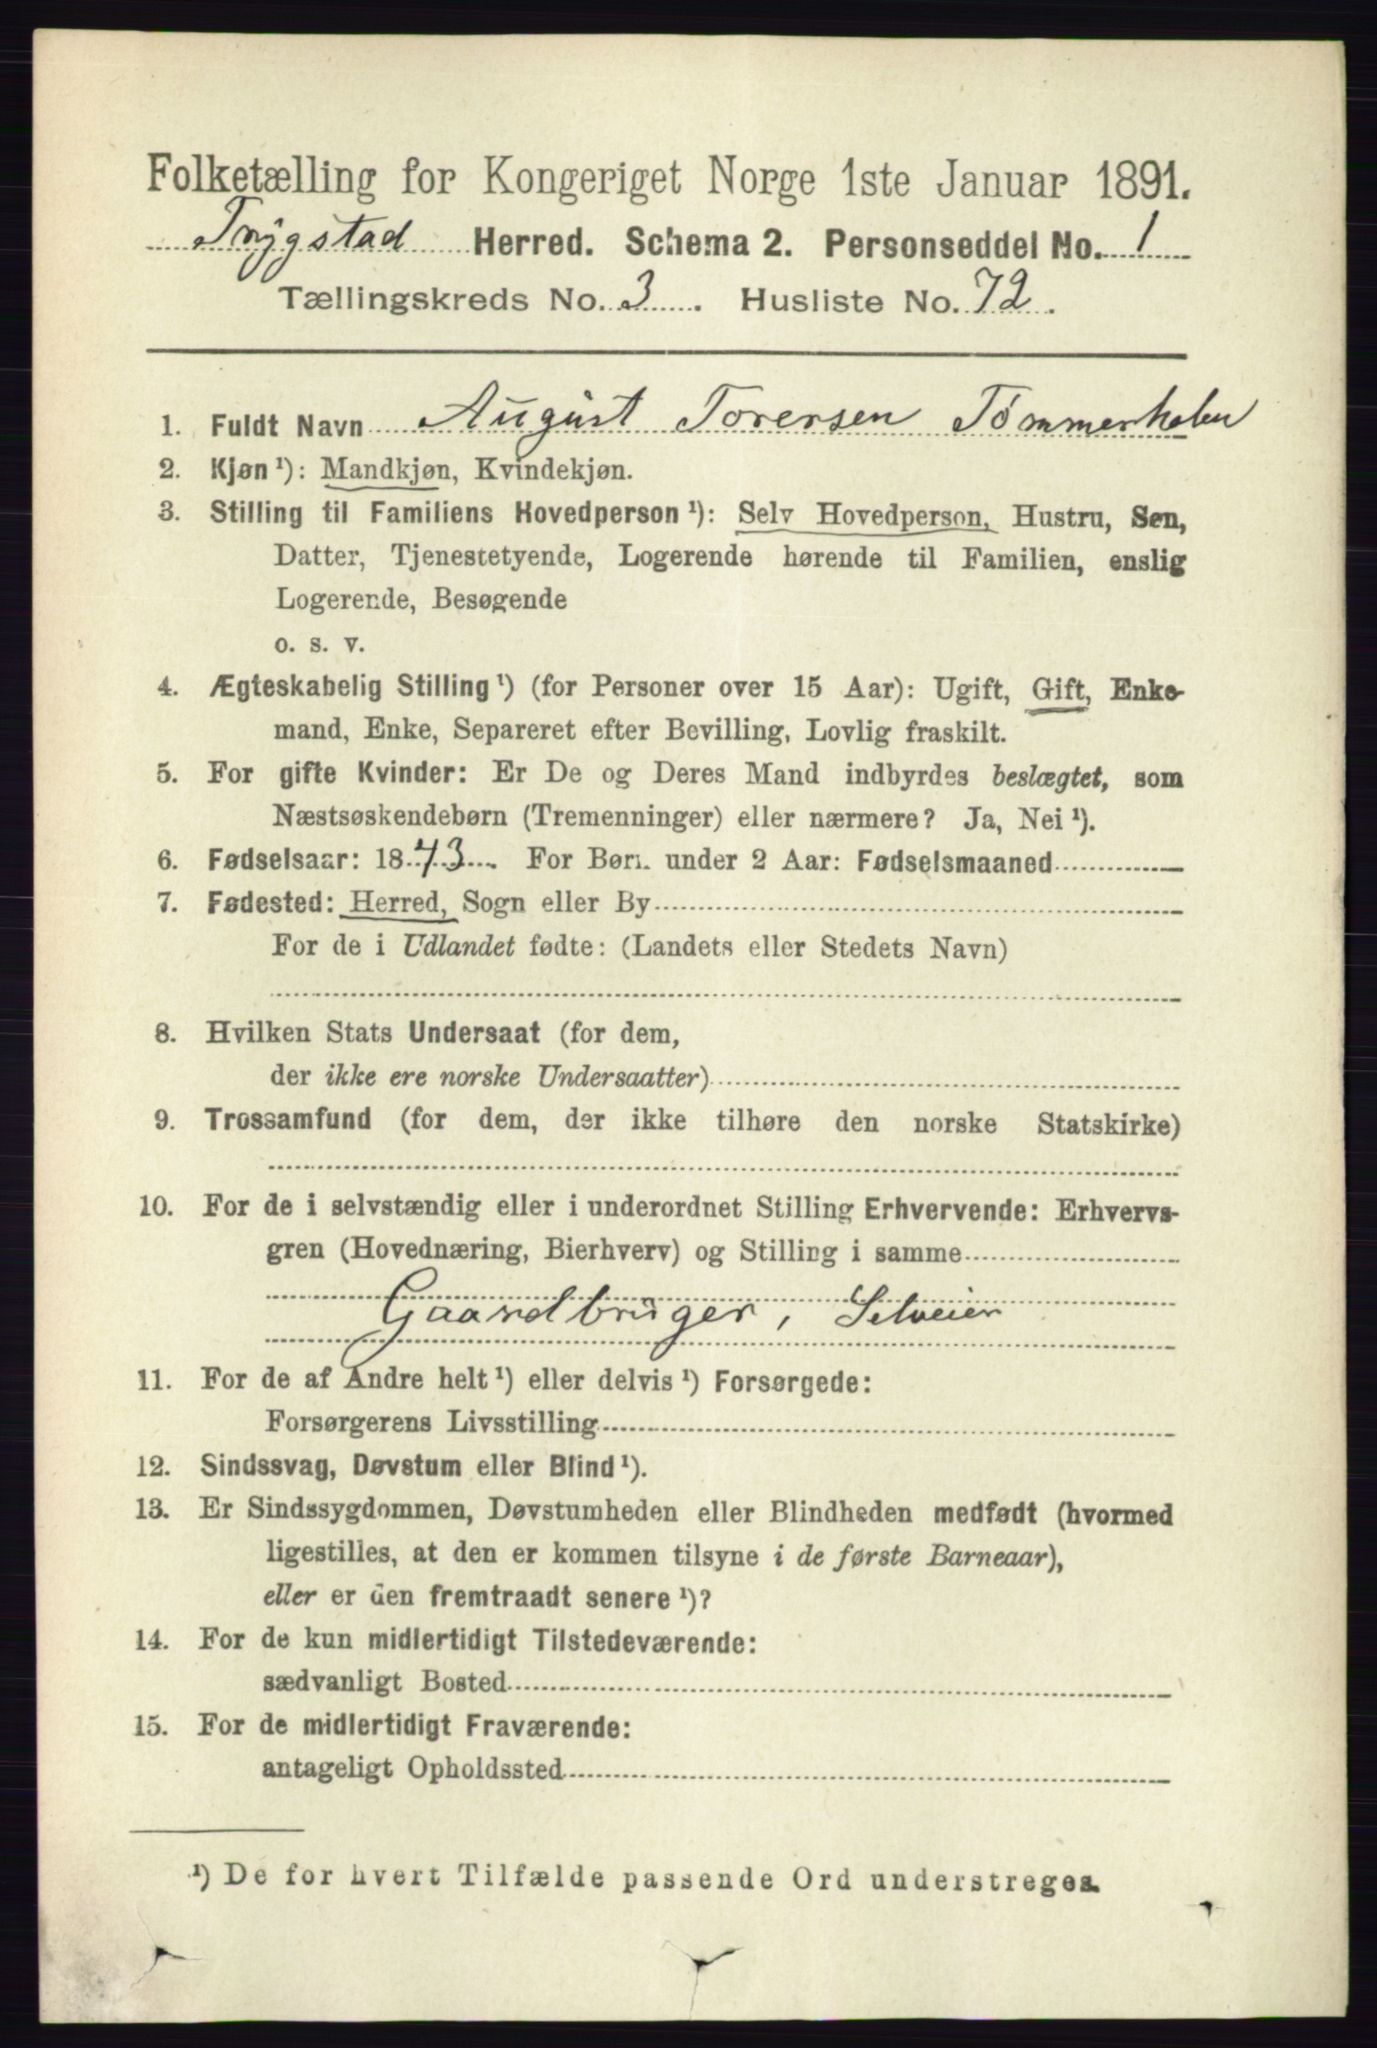 Folketælling for Kongeriget Norge 1ste Januar 1891.
Trygstad Herred. Schema 2. Personseddel No. 1
Tællingskreds No. 3. Husliste No. 72.
1. Fuldt Navn August Torersen Tømmerholen
2. Kjøn ¹): Mandkjøn, Kvindekjøn.
3. Stilling til Familiens Hovedperson ¹): Selv Hovedperson, Hustru, Søn,
Datter, Tjenestetyende, Logerende hørende til Familien, enslig
Logerende, Besøgende
o. s. v.
4. Ægteskabelig Stilling ¹) (for Personer over 15 Aar): Ugift, Gift, Enke-
mand, Enke, Separeret efter Bevilling, Lovlig fraskilt.
5. For gifte Kvinder: Er De og Deres Mand indbyrdes beslægtet, som
Næstsøskendebørn (Tremenninger) eller nærmere? Ja, Nei ¹).
6. Fødselsaar: 1843. For Børn under 2 Aar: Fødselsmaaned
7. Fødested: Herred, Sogn eller By
For de i Udlandet fødte: (Landets eller Stedets Navn)
8. Hvilken Stats Undersaat (for dem,
der ikke ere norske Undersaatter)
9. Trossamfund (for dem, der ikke tilhøre den norske Statskirke)
10. For de i selvstændig eller i underordnet Stilling Erhvervende: Erhvervs-
gren (Hovednæring, Bierhverv) og Stilling i samme
Gaardbruger, Selveier
11. For de af Andre helt ¹) eller delvis ¹) Forsørgede:
Forsørgerens Livsstilling
12. Sindssvag, Døvstum eller Blind ¹).
13. Er Sindssygdommen, Døvstumheden eller Blindheden medfødt (hvormed
ligestilles, at den er kommen tilsyne i de første Barneaar),
eller er den fremtraadt senere ¹)?
14. For de kun midlertidigt Tilstedeværende:
sædvanligt Bosted
15. For de midlertidigt Fraværende:
antageligt Opholdssted
¹) De for hvert Tilfælde passende Ord understreges.